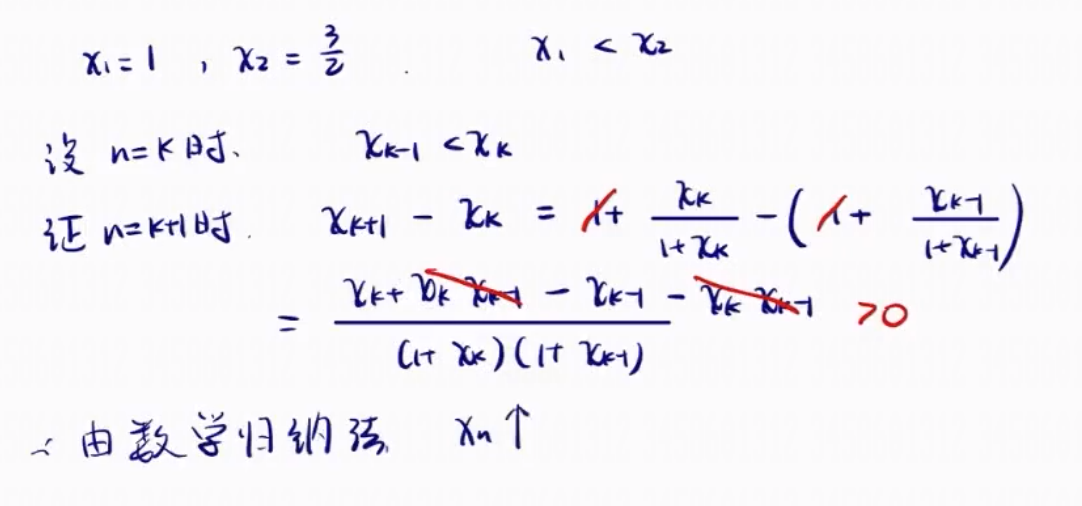 x₁ = 1 , x₂ = 3/2 . x₁ < x₂
设 n=k 时. x_{k-1} < x_k
证 n=k+1时. x_{k+1} - x_k = 1+ x_k/(1+x_k) - (1+ x_{k-1}/(1+x_{k-1}))
= (x_k + x_k x_{k-1} - x_{k-1} - x_k x_{k-1})/((1+x_k)(1+x_{k-1})) >0
∴ 由数学归纳法 x_n ↑